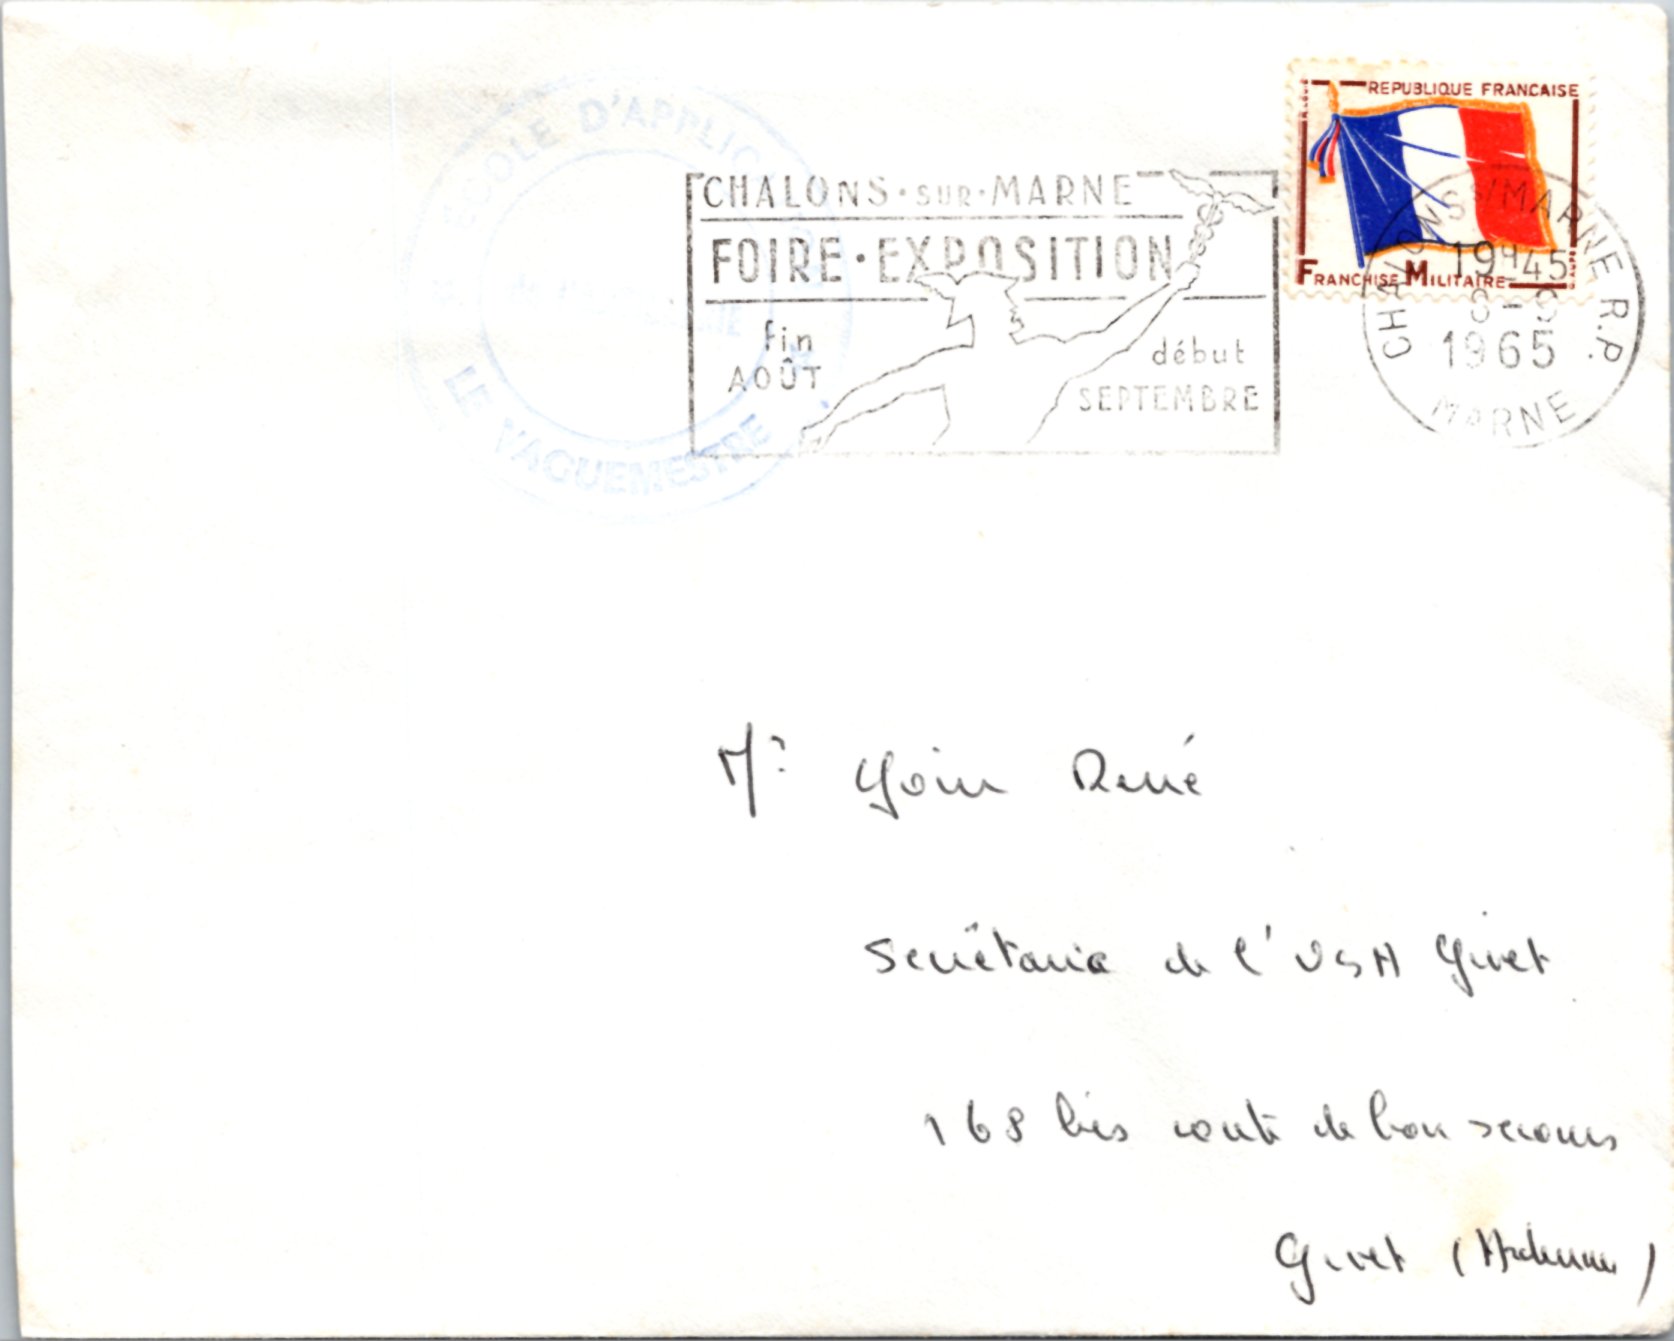 REPUBLIQUE FRANCAISE
FRANCHISE MILITAIRE
CHALONS S/MARNE R.P.
19H45
1965
MARNE
CHALONS·SUR·MARNE
FOIRE·EXPOSITION
fin
AOÛT
début
SEPTEMBRE
ECOLE D'APPLIC
LE VAGUEMESTRE
Mr René
Secrétaire de l'USA Givet
168 bis route de bon secours
Givet (Ardennes)